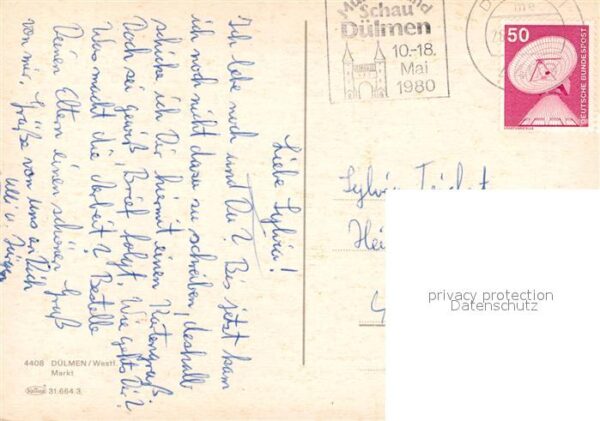 Liebe Sylvia!
Ich lebe noch und Du? Bis jetzt kam
ich noch nicht dazu zu schreiben, deshalb
schicke ich Dir hiermit einen Kartengruß.
Doch sei gewiß, Brief folgt. Wie gehts Dir?
Was macht die Arbeit? Bestelle
Deinen Eltern einen schönen Gruß
von mir. Grüße von uns an Dich
Ulli u. Jürgen
4408 DÜLMEN/Westf.
Markt
31.664 3
Schau
Dülmen
10.-18.
Mai
1980
50
DEUTSCHE BUNDESPOST
Sylvia
privacy protection
Datenschutz